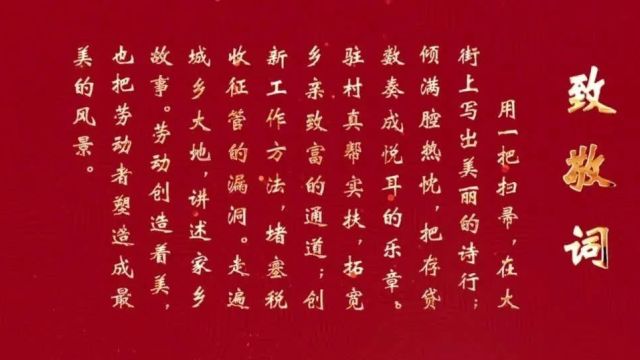 致敬词
用一把扫帚，在火
街上写出美丽的诗行；
倾满腔热忱，把存贷
数奏成悦耳的乐章。
驻村真帮实扶，拓宽
乡亲致富的通道；创
新工作方法，堵塞税
收征管的漏洞。走遍
城乡大地，讲述家乡
故事。劳动创造着美，
也把劳动者塑造成最
美的风景。